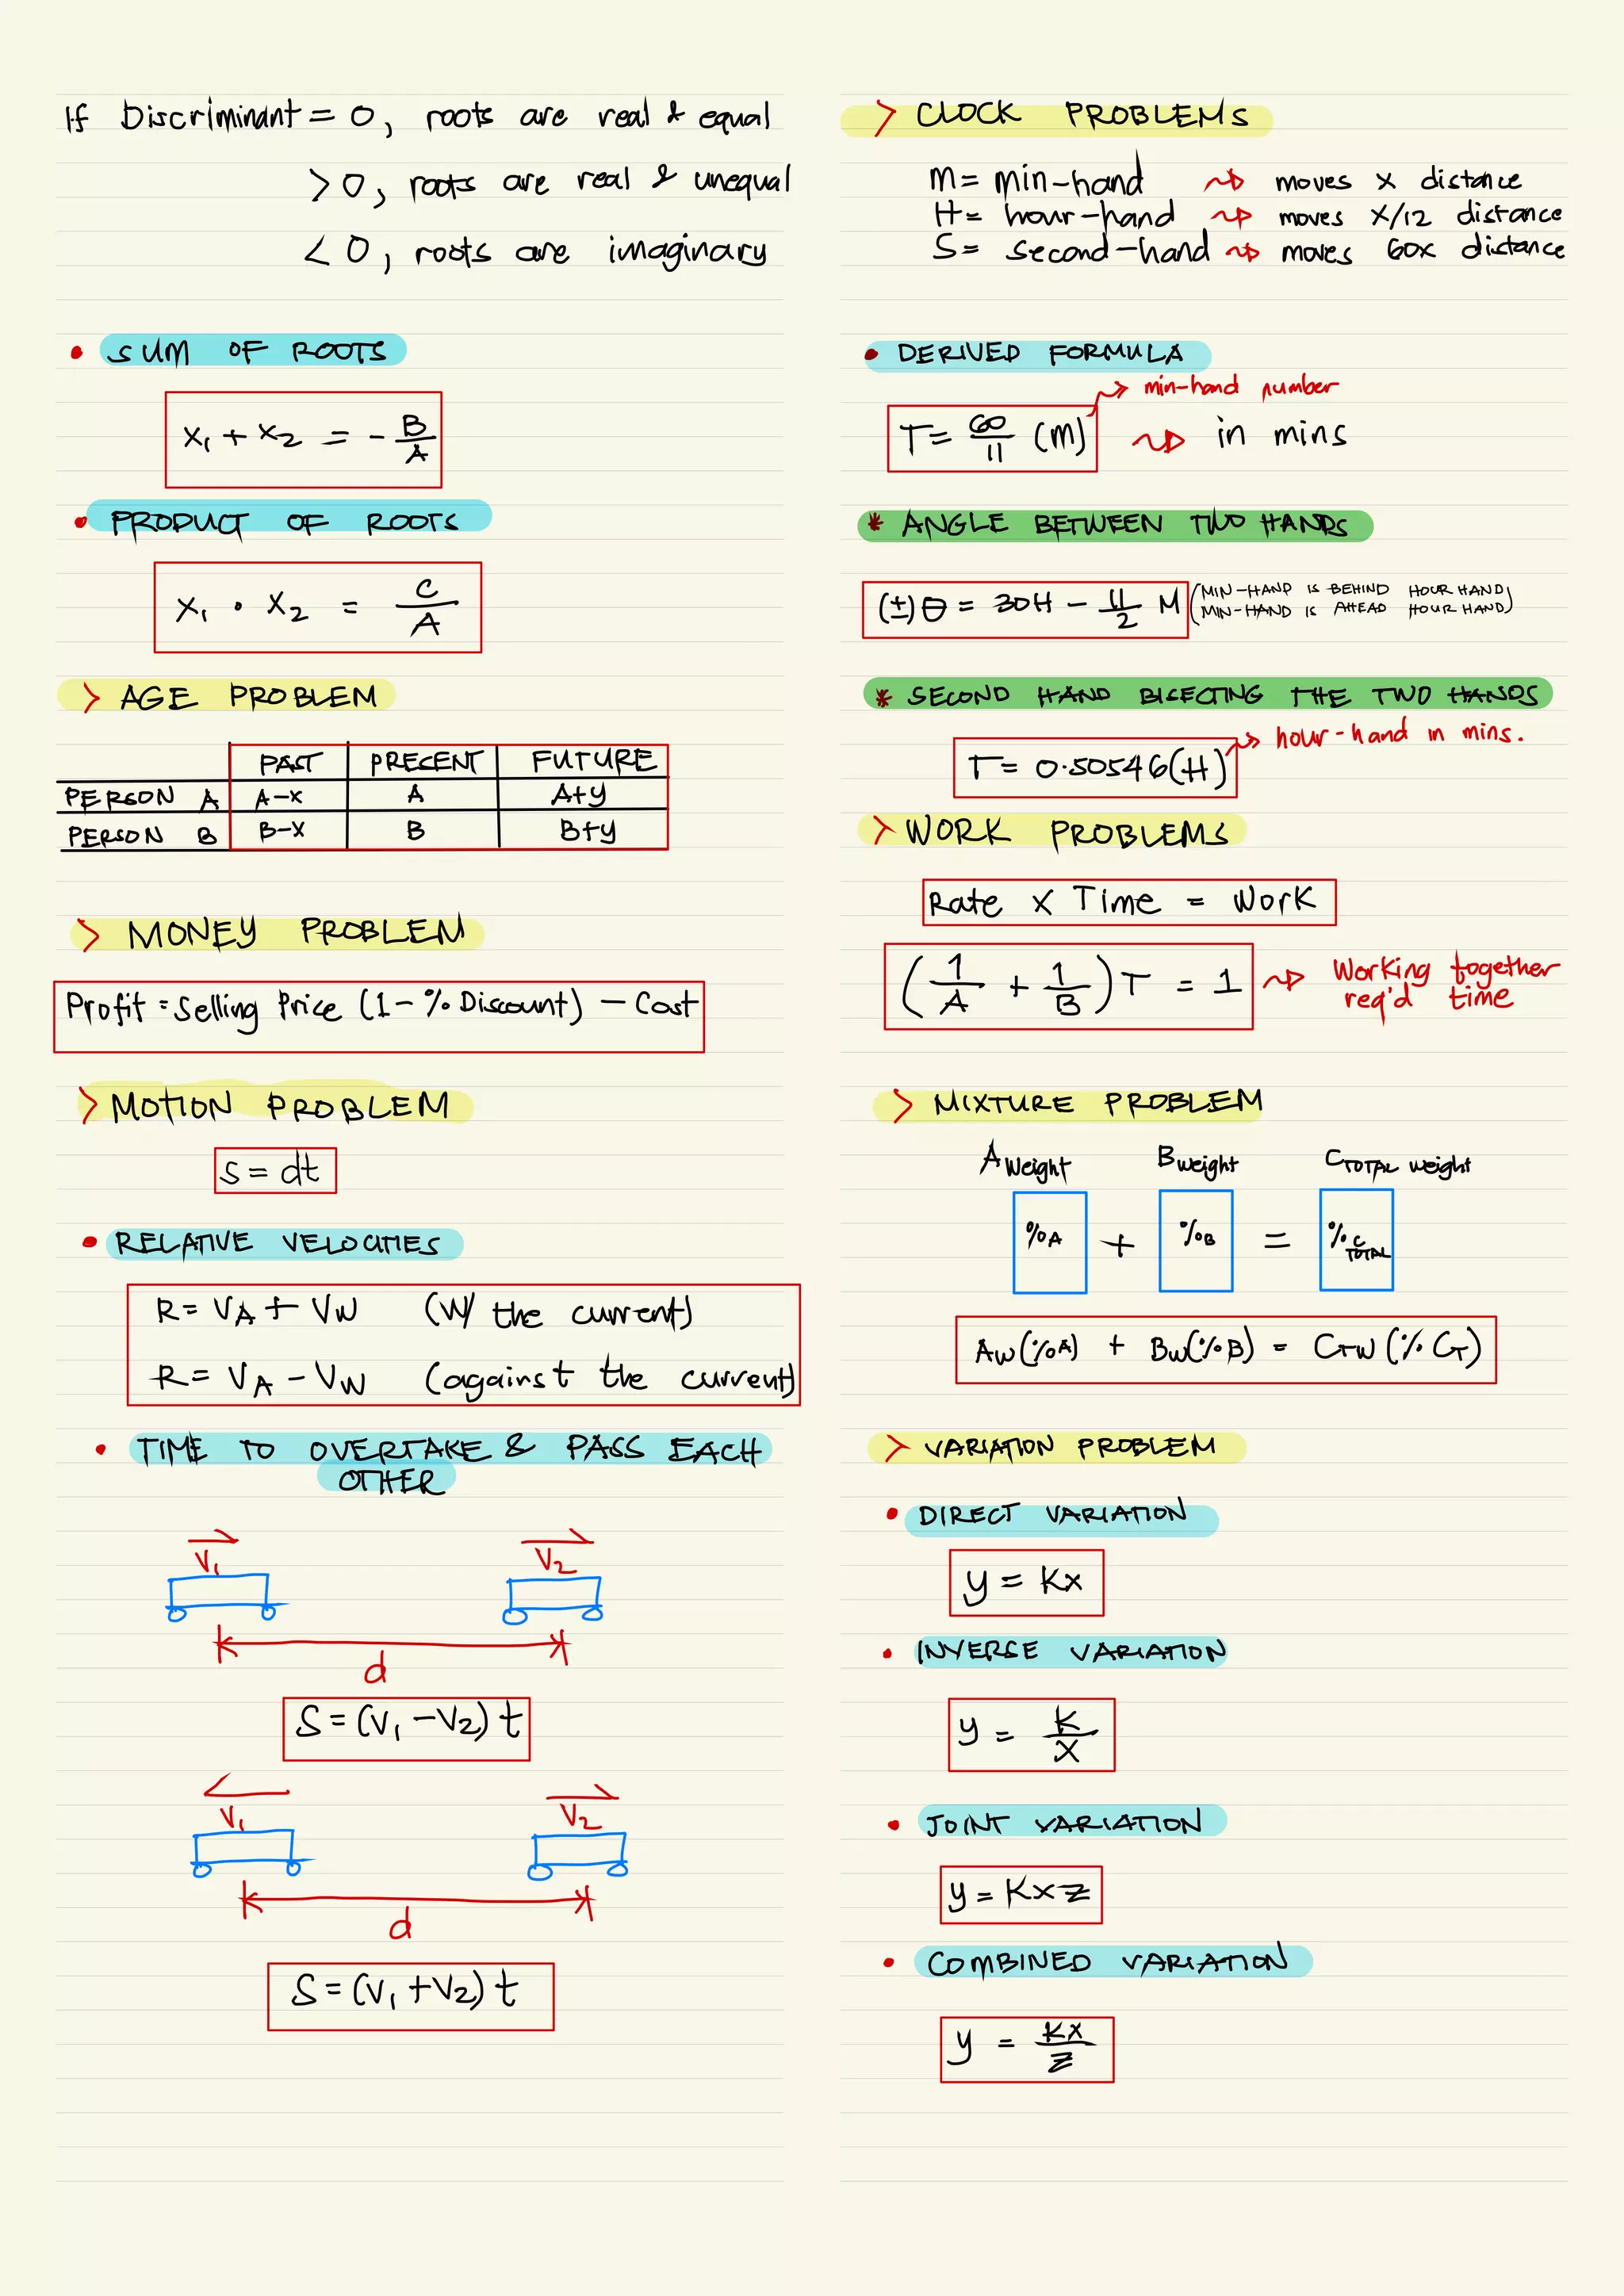 If Discriminant = 0, roots are real & equal
> 0, roots are real & unequal
< 0, roots are imaginary
• SUM OF ROOTS
x₁ + x₂ = - B/A
• PRODUCT OF ROOTS
x₁ • x₂ = C/A
> AGE PROBLEM
PAST PRESENT FUTURE
PERSON A A-x A A+y
PERSON B B-x B B+y
> MONEY PROBLEM
Profit = Selling Price (1 - % Discount) - Cost
> MOTION PROBLEM
S = dt
• RELATIVE VELOCITIES
R = VA + VW (W/ the current)
R = VA - VW (against the current)
• TIME TO OVERTAKE & PASS EACH
OTHER
V₁ V₂
d
S = (V₁ - V₂) t
V₁ V₂
d
S = (V₁ + V₂) t
> CLOCK PROBLEMS
M = min-hand ⇝ moves x distance
H = hour-hand ⇝ moves x/12 distance
S = second-hand ⇝ moves 60x distance
• DERIVED FORMULA
min-hand number
T = 60/11 (M) ⇝ in mins
* ANGLE BETWEEN TWO HANDS
(±)θ = 30H - 11/2 M (MIN-HAND IS BEHIND HOUR HAND)
(MIN-HAND IS AHEAD HOUR HAND)
* SECOND HAND BISECTING THE TWO HANDS
hour-hand in mins.
T = 0.50546(H)
> WORK PROBLEMS
Rate x Time = Work
(1/A + 1/B) T = 1 ⇝ Working together
req'd time
> MIXTURE PROBLEM
A weight B weight C TOTAL weight
%A + %B = %C TOTAL
AW(%A) + BW(%B) = CTW (% CT)
> VARIATION PROBLEM
• DIRECT VARIATION
y = Kx
• INVERSE VARIATION
y = K/x
• JOINT VARIATION
y = Kxz
• COMBINED VARIATION
y = Kx/z